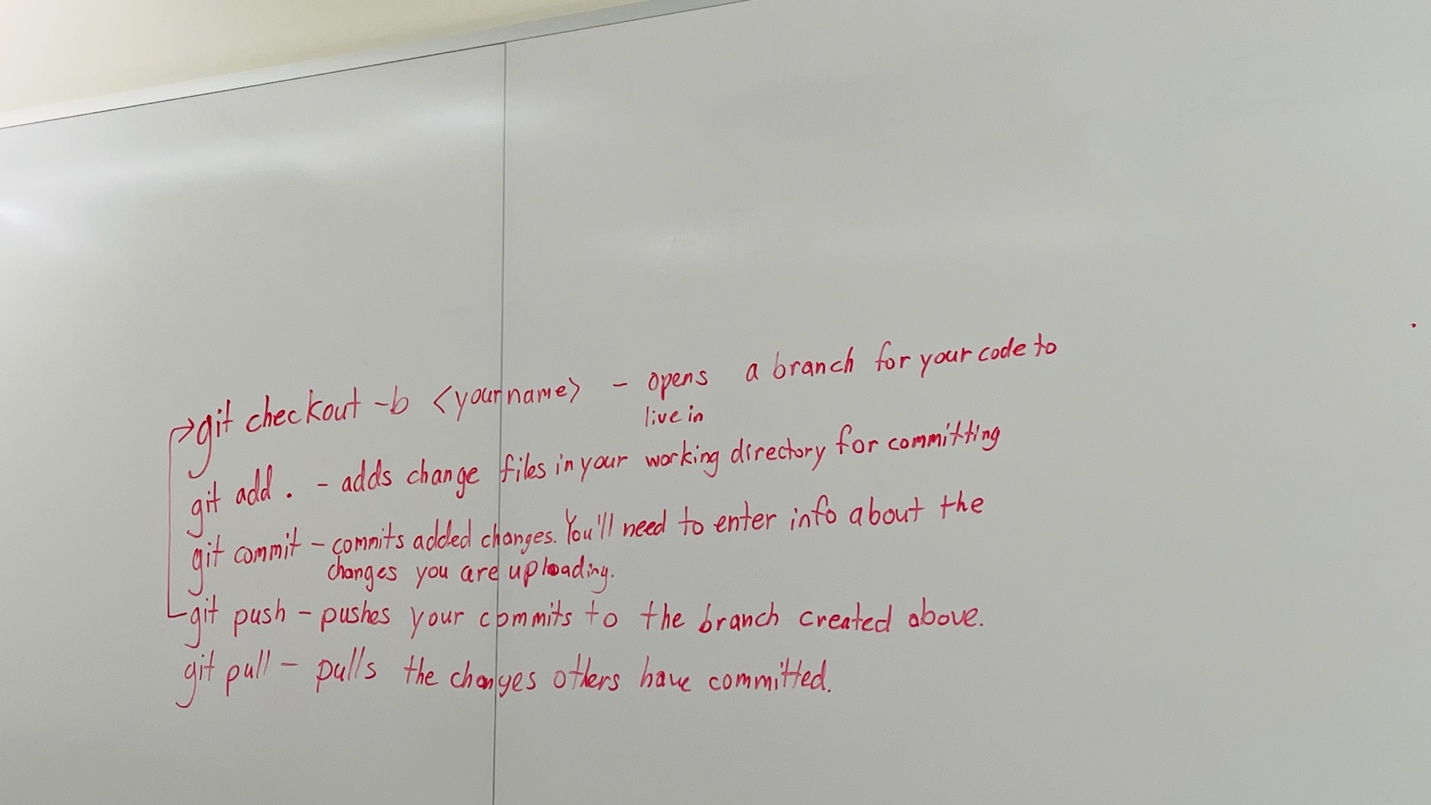 git checkout -b <yourname> - opens a branch for your code to
live in
git add . - adds change files in your working directory for committing
git commit - commits added changes. You'll need to enter info about the
changes you are uploading.
git push - pushes your commits to the branch created above.
git pull - pulls the changes others have committed.